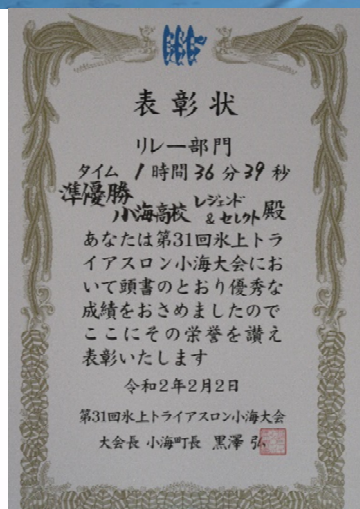 表彰状
リレー部門
タイム 1時間36分39秒
準優勝
小海高校 レジェンド
&セレクト 殿
あなたは第31回氷上トラ
イアスロン小海大会にお
いて頭書のとおり優秀な
成績をおさめましたので
ここにその栄誉を讃え
表彰いたします
令和2年2月2日
第31回氷上トライアスロン小海大会
大会長 小海町長 黒澤 弘